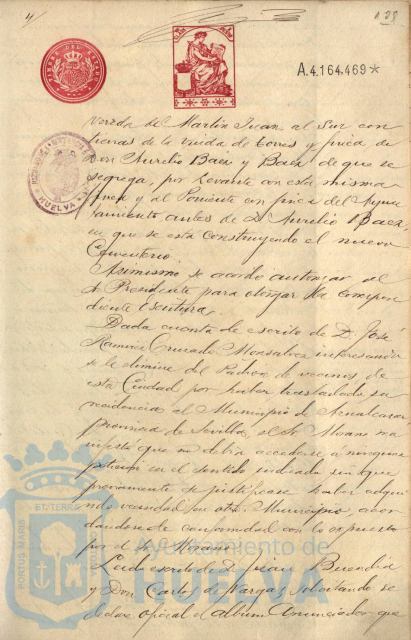 4
139
A.4.164.469*
vereda de Martín Juan, al Sur con
tierras de la viuda de Torres y finca de
Don Aurelio Baez y Baez de que se
segrega, por Levante con esta misma
finca y al Poniente con finca del Ayun
tamiento antes de D. Aurelio Baez,
en que se está construyendo el nuevo
Cementerio.
Asimismo se acordo autorizar al
Sr Presidente para otorgar la correspon
diente escritura.
Dada cuenta de escrito de D. José
Ramirez Cruzado Monsalvez interesando
se le elimine del Padron de vecinos de
esta Ciudad por haber trasladado su
residencia al Municipio de Aznalcazar
provincia de Sevilla, el Sr Moreno ma
nifestó que no debia accederse a ninguna
peticion en el sentido indicado sin que
previamente se justificase haber adqui
rido vecindad en otro Municipio, acor
dandose de conformidad con lo expuesto
por el Sr Moreno.
Leido escrito de D. Juan
y Don Carlos de Vargas solicitando se
declare oficial el album Anunciador que
HUELVA
PORTUS MARIS ET TERRAE
Ayuntamiento de
HUELVA